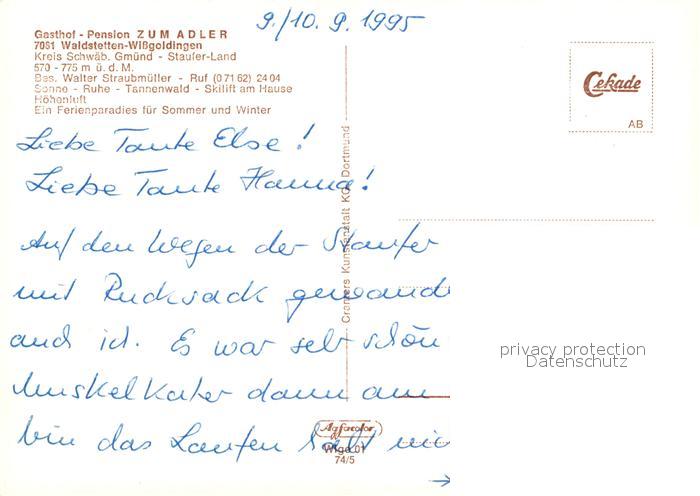 9./10. 9. 1995
Gasthof - Pension ZUM ADLER
7051 Waldstetten-Wißgoldingen
Kreis Schwäb. Gmünd - Staufer-Land
570 - 775 m ü. d. M.
Bes. Walter Straubmüller - Ruf (07162) 2404
Sonne - Ruhe - Tannenwald - Skilift am Hause
Höhenluft
Ein Ferienparadies für Sommer und Winter
Cekade
AB
Liebe Tante Else!
Liebe Tante Hanna!
Auf den Wegen der Staufer
mit Rucksack gewand
auch ich. Es war sehr schön
Muskelkater dann am
bin das Laufen halt nic
→
Cramers Kunstanstalt KG, Dortmund
Agfacolor
Wigo 01
74/5
privacy protection
Datenschutz